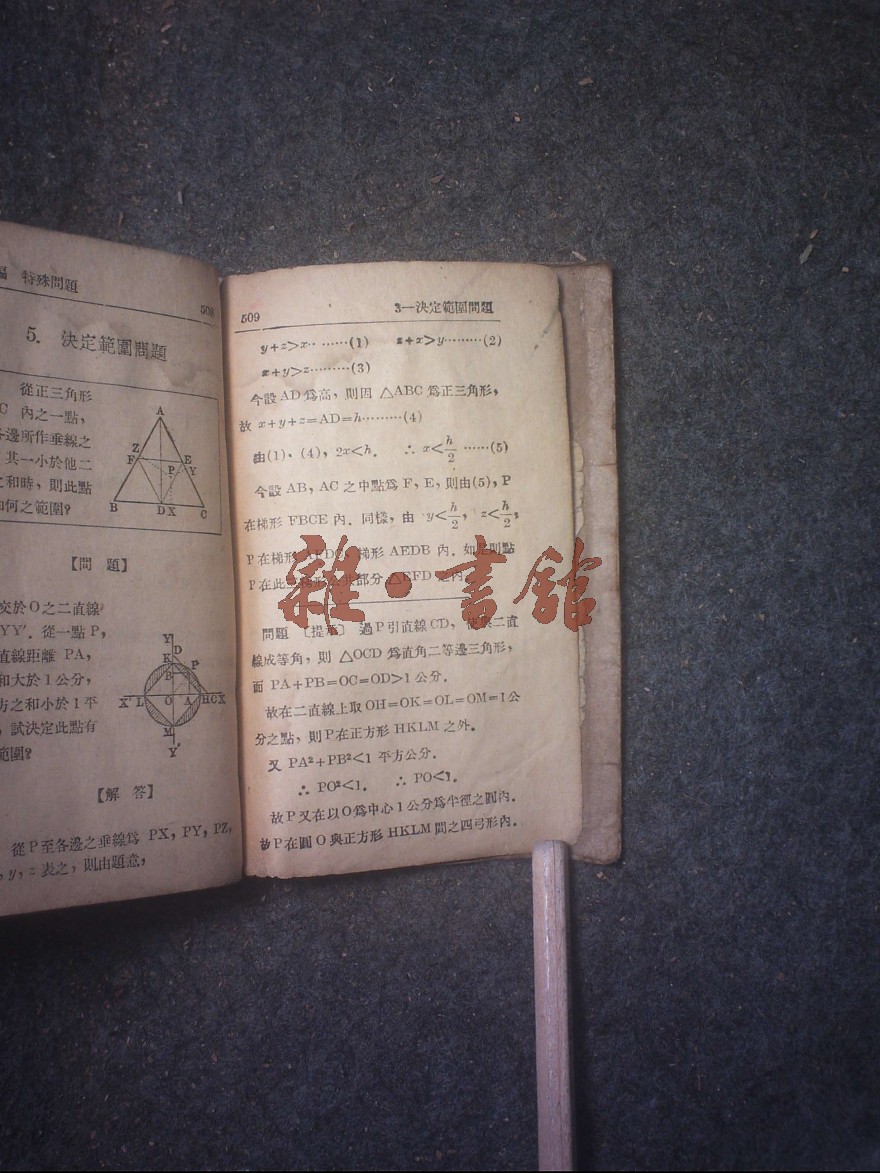 特殊問題
508
5. 決定範圍問題
從正三角形
C 內之一點,
各邊所作垂線之
其一小於他二
之和時,則此點
如何之範圍?
A
Z
F
E
P
Y
B
D X
C
【問 題】
交於O之二直線
YY′.從一點P,
直線距離 PA,
和大於1公分,
方之和小於1平
試決定此點有
範圍?
Y
D
K
B
P
X′
L
O
A
H
C
X
M
Y′
【解 答】
從P至各邊之垂線爲 PX, PY, PZ,
y, z 表之,則由題意,
509
3—決定範圍問題
y+z>x·········(1) z+x>y·········(2)
x+y>z·········(3)
今設AD爲高,則因 △ABC 爲正三角形,
故 x+y+z=AD=h·········(4)
由(1), (4), 2x<h. ∴ x<h/2 ······(5)
今設 AB, AC 之中點爲 F, E,則由(5), P
在梯形 FBCE 內.同樣,由 y<h/2, z<h/2,
P在梯形 AFDC,梯形 AEDB 內.如是則點
P在此三梯形公共部分 △EFD 之內.
問題 〔提示〕 過P引直線CD,使與二直
線成等角,則 △OCD 爲直角二等邊三角形,
而 PA+PB=OC=OD>1公分.
故在二直線上取OH=OK=OL=OM=1公
分之點,則P在正方形 HKLM 之外.
又 PA²+PB²<1 平方公分.
∴ PO²<1. ∴ PO<1.
故P又在以O爲中心1公分爲半徑之圓內.
故P在圓O與正方形HKLM間之四弓形內.
雜·書館